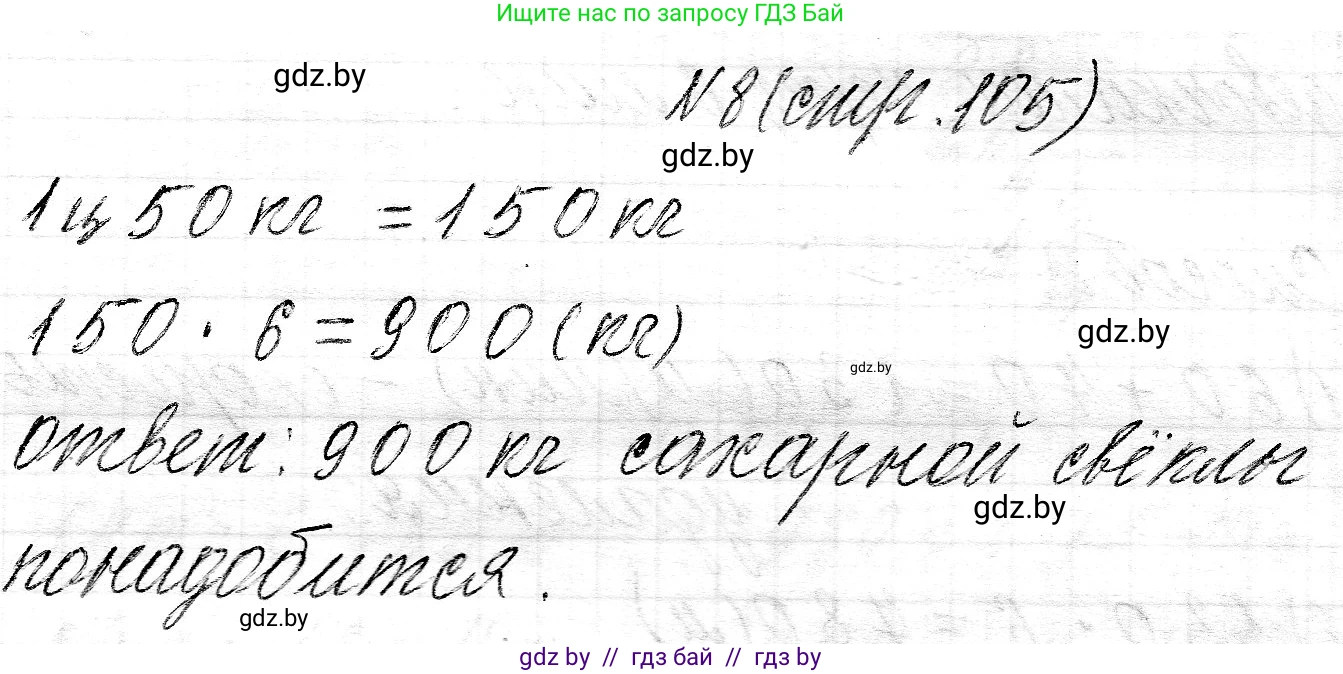 Ищите нас по запросу ГДЗ Бай
gdz.by
N8(стр.105)
gdz.by
1ц 50 кг = 150 кг
150 · 6 = 900 (кг)
gdz.by
gdz.by
ответ: 900 кг сахарной свёклы
gdz.by
понадобится.
gdz.by
gdz by // гдз бай // гдз by